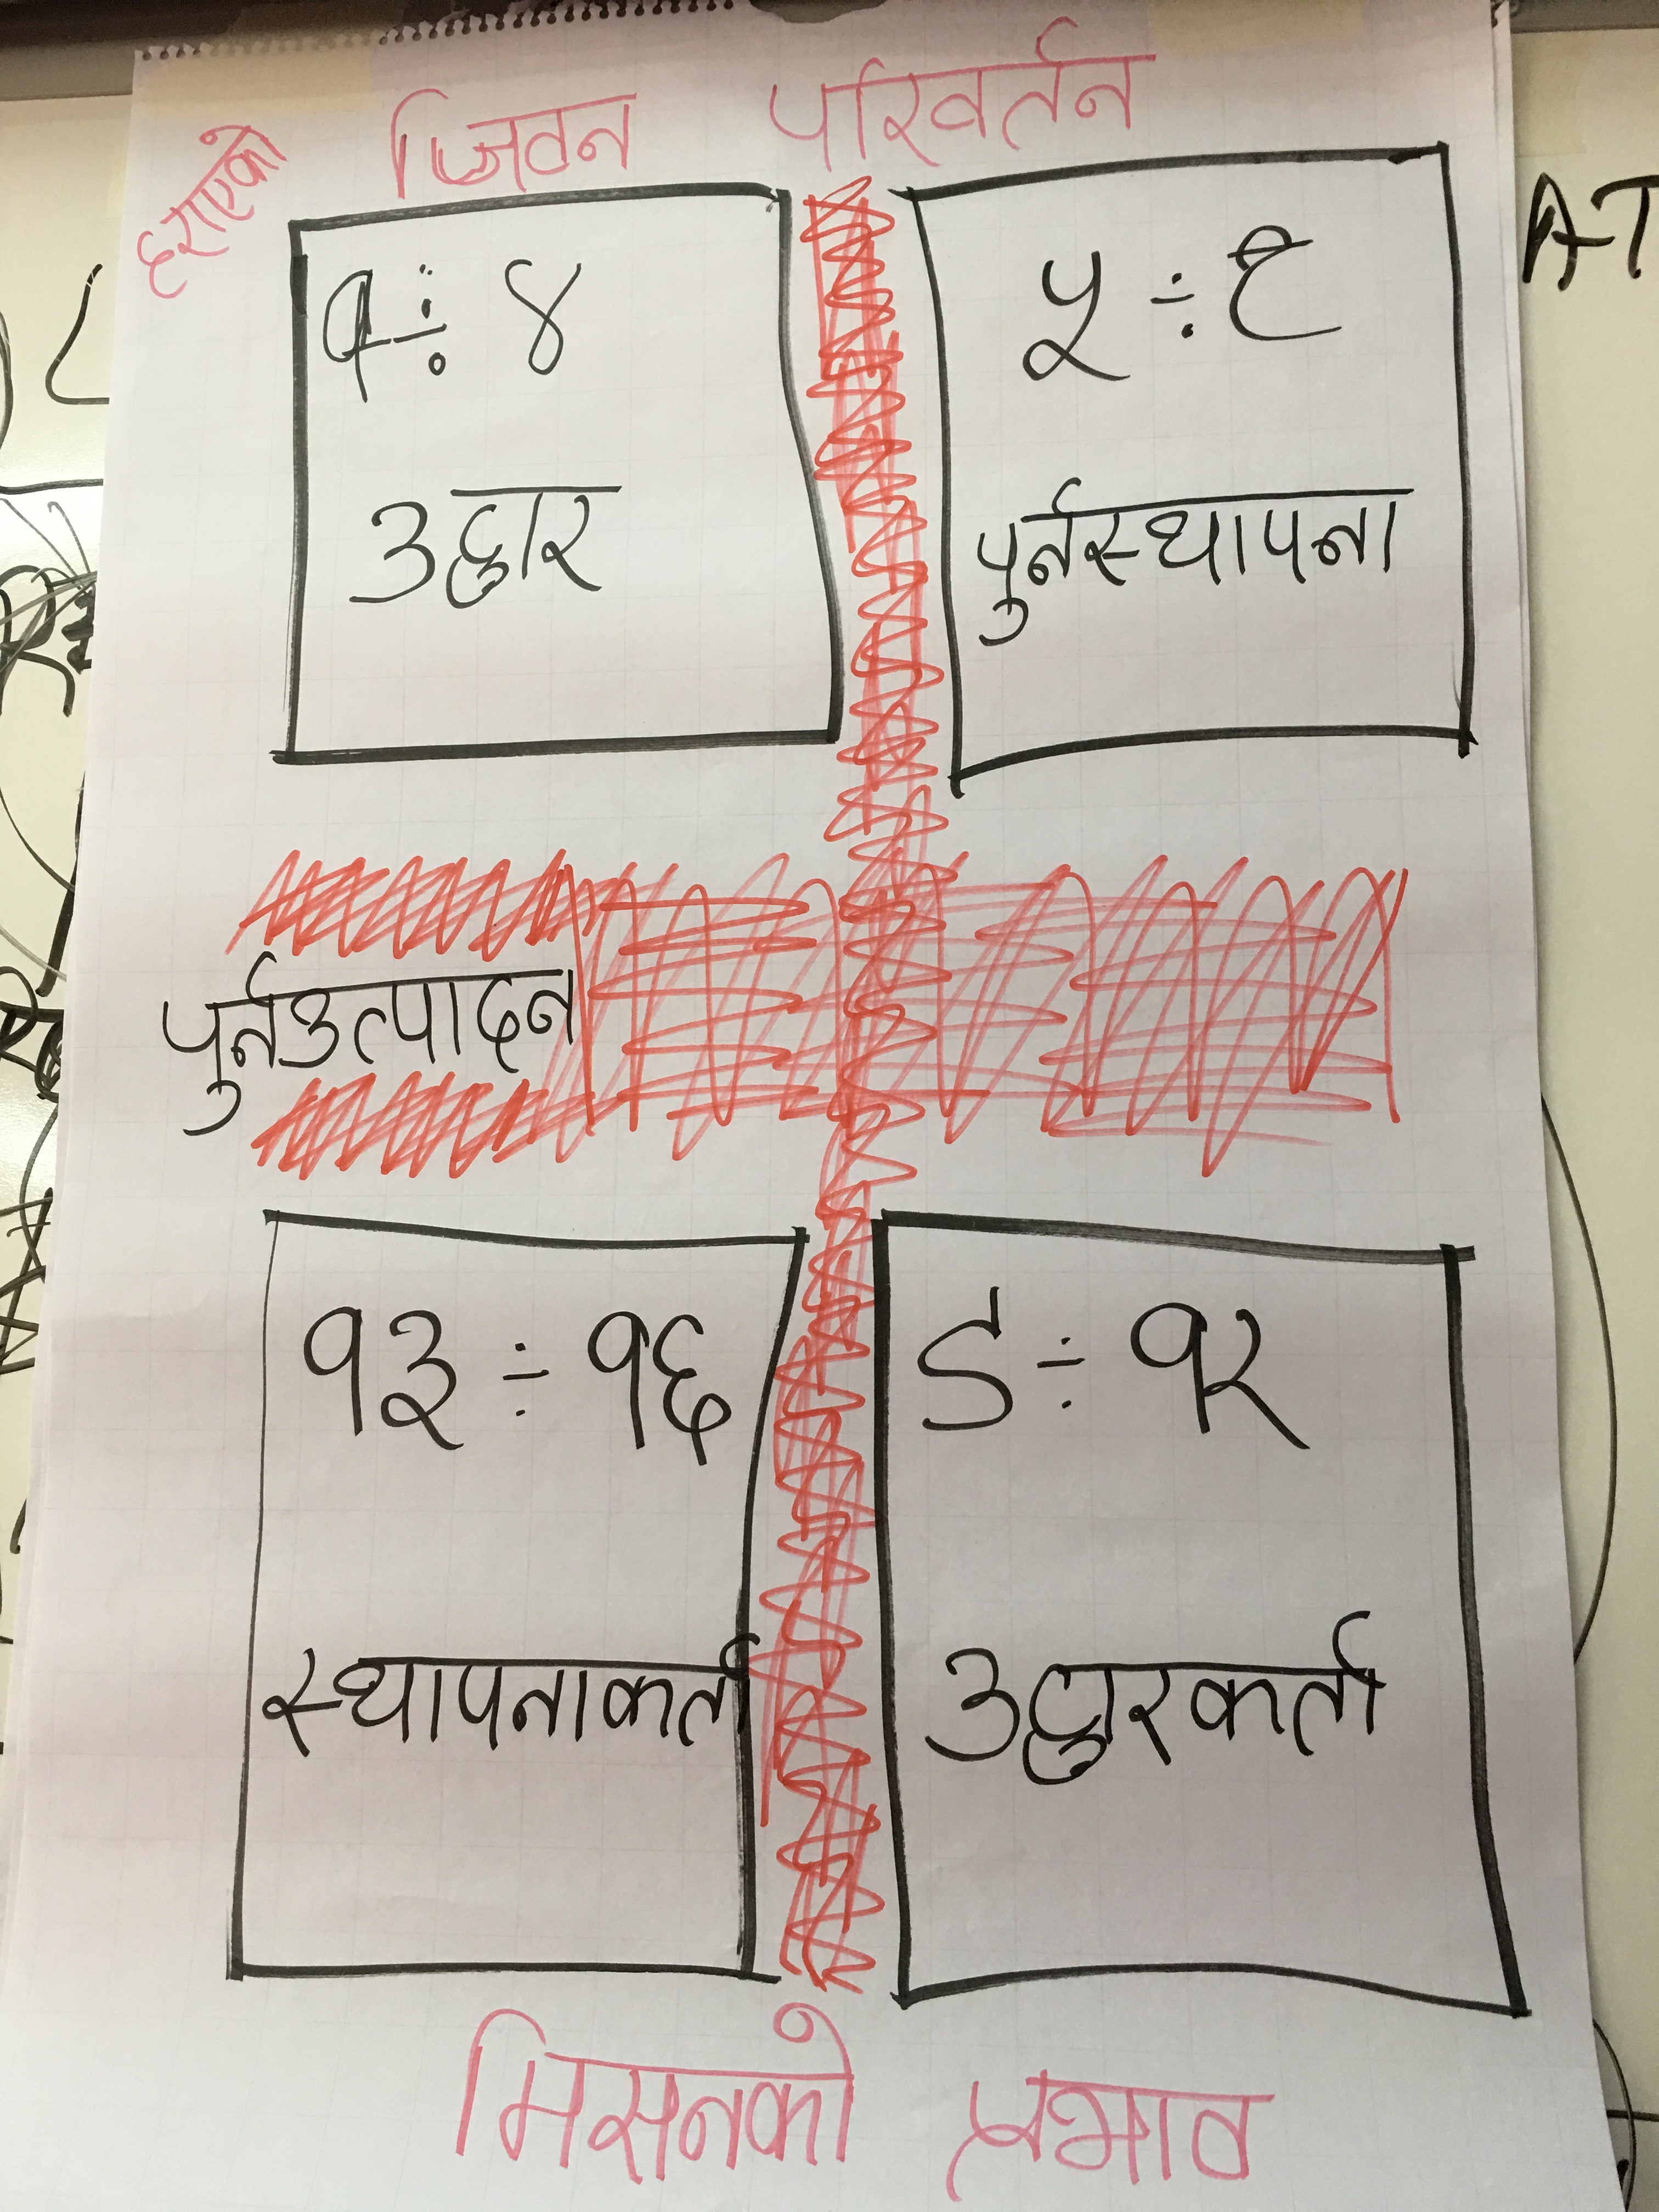 हराएको
जिवन परिवर्तन
१÷४
५÷८
उद्धार
पुर्नस्थापना
पुर्नउत्पादन
१३÷१६
९÷१२
स्थापनाकर्ता
उद्धारकर्ता
मिसनको प्रभाव
AT